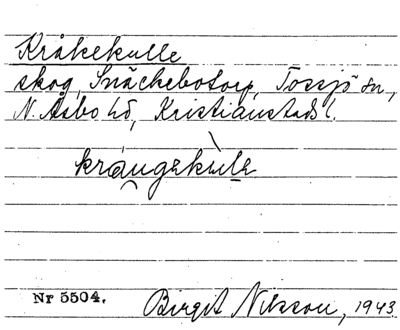 Kråkekulle
skog, Snäckebotorp, Tossjö sn,
N. Åsbo hd, Kristianstads l.
Nr 5504.
Birgit Nilsson, 1943